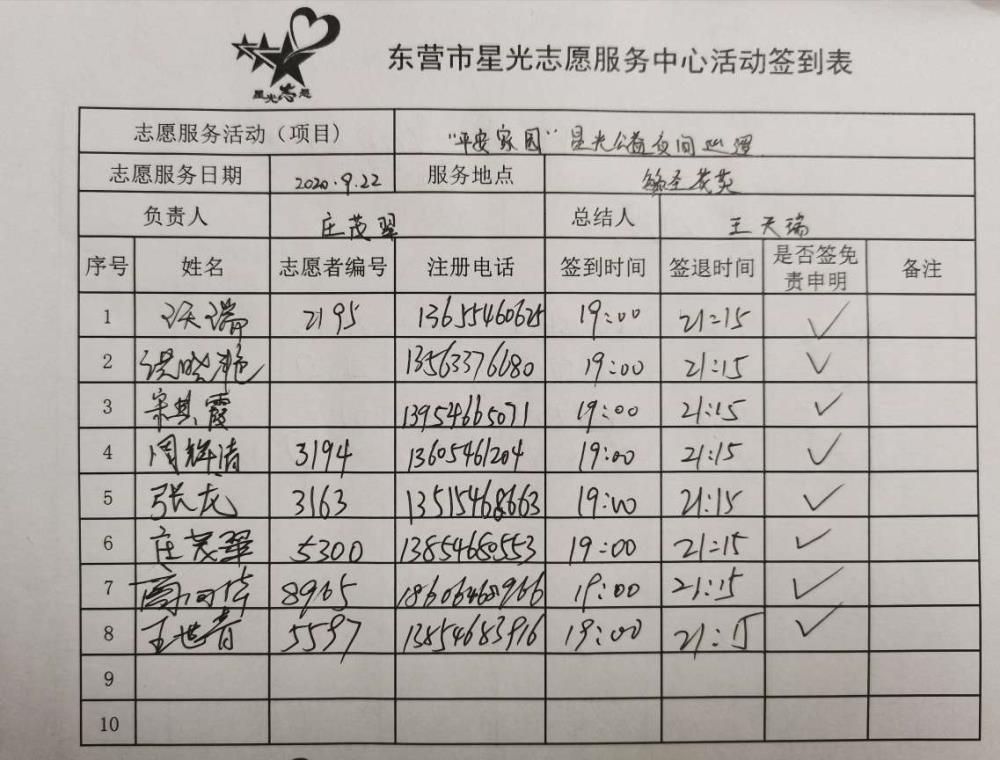 星光志愿
东营市星光志愿服务中心活动签到表
志愿服务活动（项目） "平安家园"星光公益夜间巡逻
志愿服务日期 2020.9.22 服务地点
负责人 庄茂翠 总结人 王天瑞
序号 姓名 志愿者编号 注册电话 签到时间 签退时间 是否签免责申明 备注
1 2195 13655460625 19:00 21:15 ✓
2 13563376680 19:00 21:15 ✓
3 宋其霞 13954665071 19:00 21:15 ✓
4 周辉清 3194 13605461204 19:00 21:15 ✓
5 张龙 3163 13515468663 19:00 21:15 ✓
6 庄茂翠 5300 13854680553 19:00 21:15 ✓
7 8965 18606468966 19:00 21:15 ✓
8 王世青 5597 13854683916 19:00 21:15 ✓
9
10